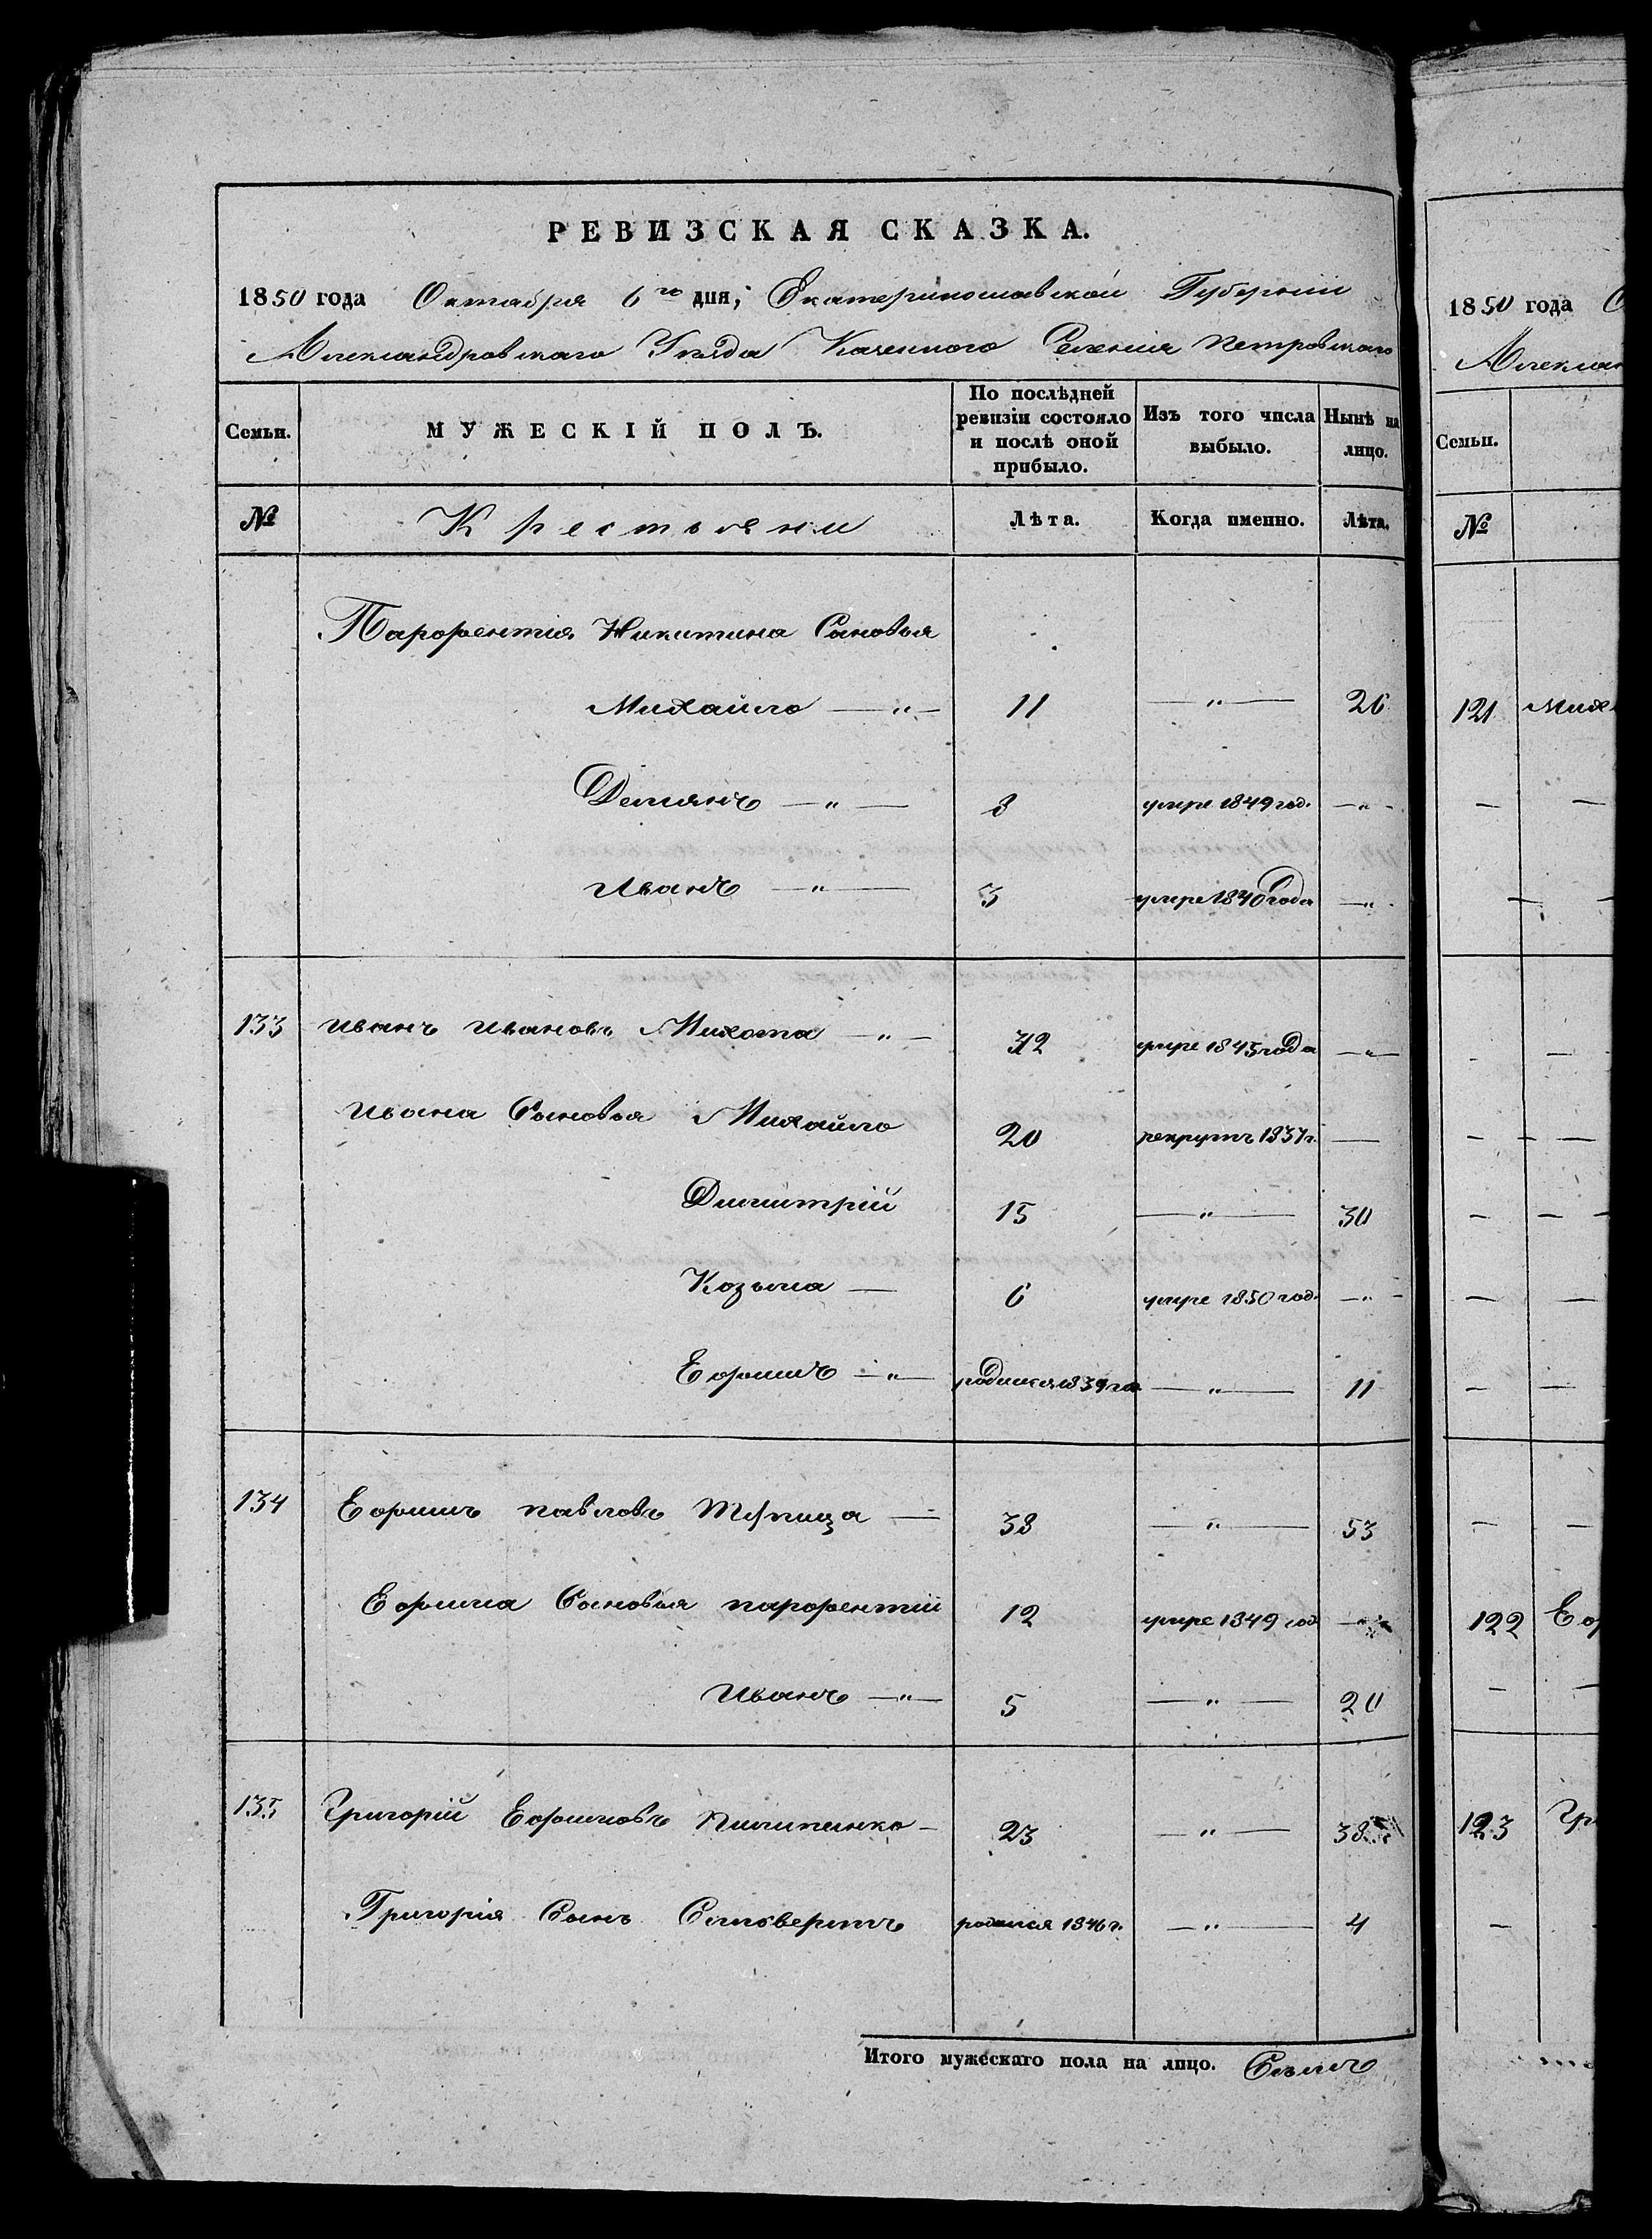 РЕВИЗСКАЯ СКАЗКА.
1850 года Октября 6го дня, Екатеринославской Губерніи
Александровскаго Уѣзда Казенного Селенія Петровскаго
Семьи. МУЖЕСКІЙ ПОЛЪ. По послѣдней ревизіи состояло и послѣ оной прибыло. Изъ того числа выбыло. Нынѣ на лицо.
№ Крестьяни Лѣта. Когда именно. Лѣта.
Парфентія Никитина Сановья
Михайло — „ — 11 — „ — 26
Демянъ — „ — 8 умре 1849 год. — „ —
Иванъ — „ — 3 умре 1840 года — „
133 Иванъ Ивановъ Михота — „ — 42 умре 1845 года — „ —
Ивана Сыновья Михайло 20 рекрутъ 1837 г. —
Димитрій 15 — „ — 30
Козьма — 6 умре 1850 год. — „ —
Ефимъ — „ — родился 1839 го — „ — 11
134 Ефимъ Павловъ — 38 — „ — 53
Ефима Сановья Парфентій 12 умре 1849 год — „
Иванъ — „ — 5 — „ — 20
135 Григорій Ефимовъ Пилипенко — 23 — „ — 38
Григорія Сынъ Селиверстъ родился 1846 г. — „ — 4
Итого мужескаго пола на лицо. Семь
1850 года
Алексан
Семьи.
№
121 Миха
122 Еф
123 Гри